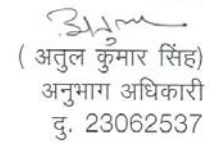 ( अतुल कुमार सिंह)
अनुभाग अधिकारी
दु. 23062537